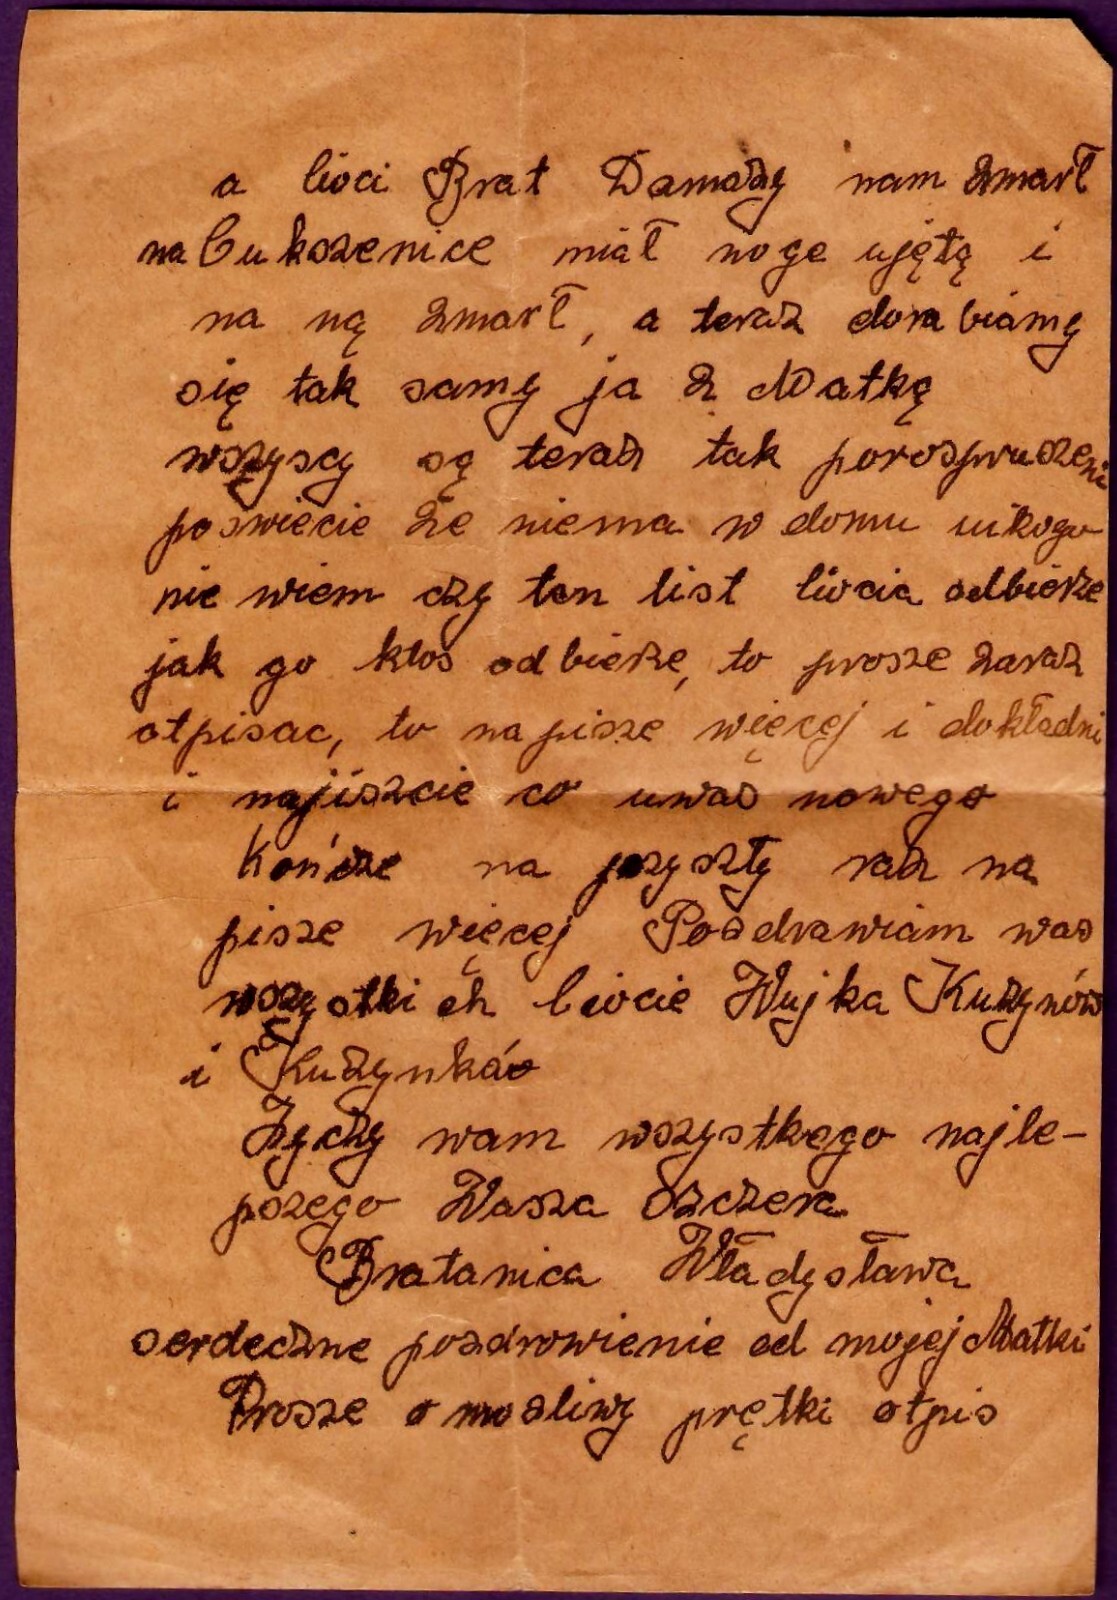 a cioci Brat Damazy nam zmarł
na Cukrzenice miał noge ujętą i
na ną zmarł, a teraz dorabiamy
się tak samy ja z Matką
wszyscy są teraz tak porospruszeni
poswiecie że niema w domu nikogo
nie wiem czy ten list ciocia odbierze
jak go ktos odbierze, to prosze zaraz
otpisac, to napisze więcej i dokładni
i najiszcie co uwas nowego
Kończe na pszyszły raz na
pisze więcej Pozdrawiam was
wszystkich Ciocie Wujka Kuzynów
i Kuzynków
Życzy wam wszystkego najle-
pszego Wasza szczera
Bratanica Władysława
serdeczne pozdrowienie od mojej Matki
Prosze o mozliwy prętki otpis